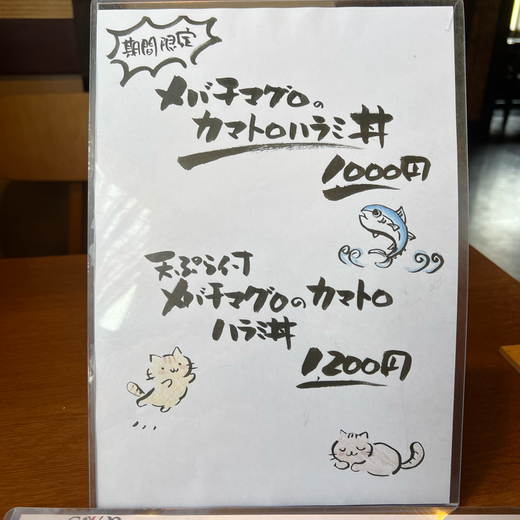 期間限定
メバチマグロの
カマトロハラミ丼
1000円
天ぷら付
メバチマグロのカマトロ
ハラミ丼
1,200円